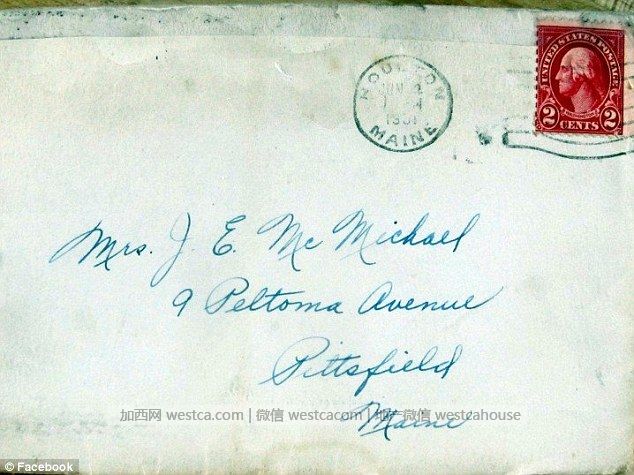 UNITED STATES POSTAGE
WASHINGTON
2 CENTS 2
HOULTON
1931
MAINE
Mrs. J. E. Mc Michael
9 Peltoma Avenue
Pittsfield
Maine
加西网 westca.com | 微信 westcacom | 地产微信 westcahouse
© Facebook